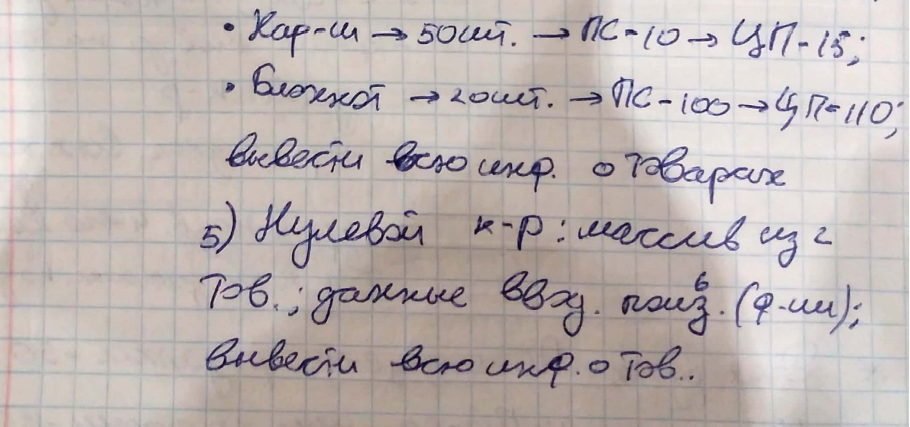 • Кар-ш → 50шт. → ПС-10 → ЦП-15;
• Блокнот → 20шт. → ПС-100 → ЦП-110;
вывести всю инф. о товарах
5) Нулевой к-р: массив из 2
Тов.; данные ввод. польз. (ф-ии);
вывести всю инф. о Тов..